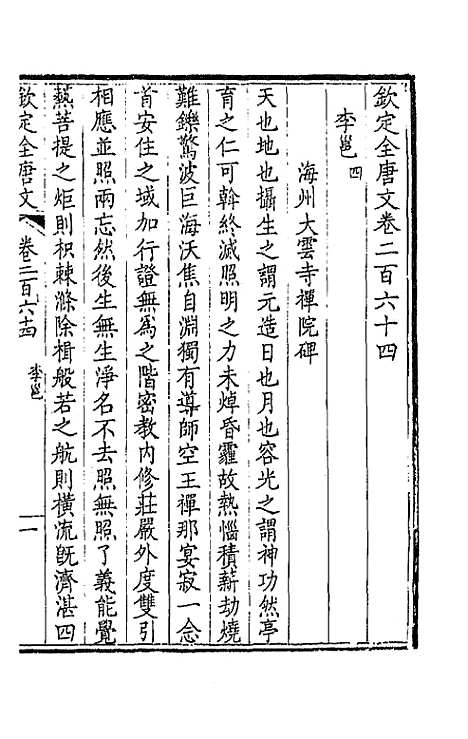 欽定全唐文卷二百六十四
李邕四
海州大雲寺禪院碑
天也地也攝生之謂元造日也月也容光之謂神功然亭
育之仁可斡終滅照明之力未焯昏霾故熱惱積薪劫燒
難鑠驚波巨海沃焦自淵獨有導師空王禪那宴寂一念
首安住之域加行證無爲之階密教內修莊嚴外度雙引
相應並照兩忘然後生無生淨名不去照無照了義能覺
爇菩提之炬則枳棘滌除楫般若之航則橫流旣濟湛四
欽定全唐文 卷二百六十四 李邕 一